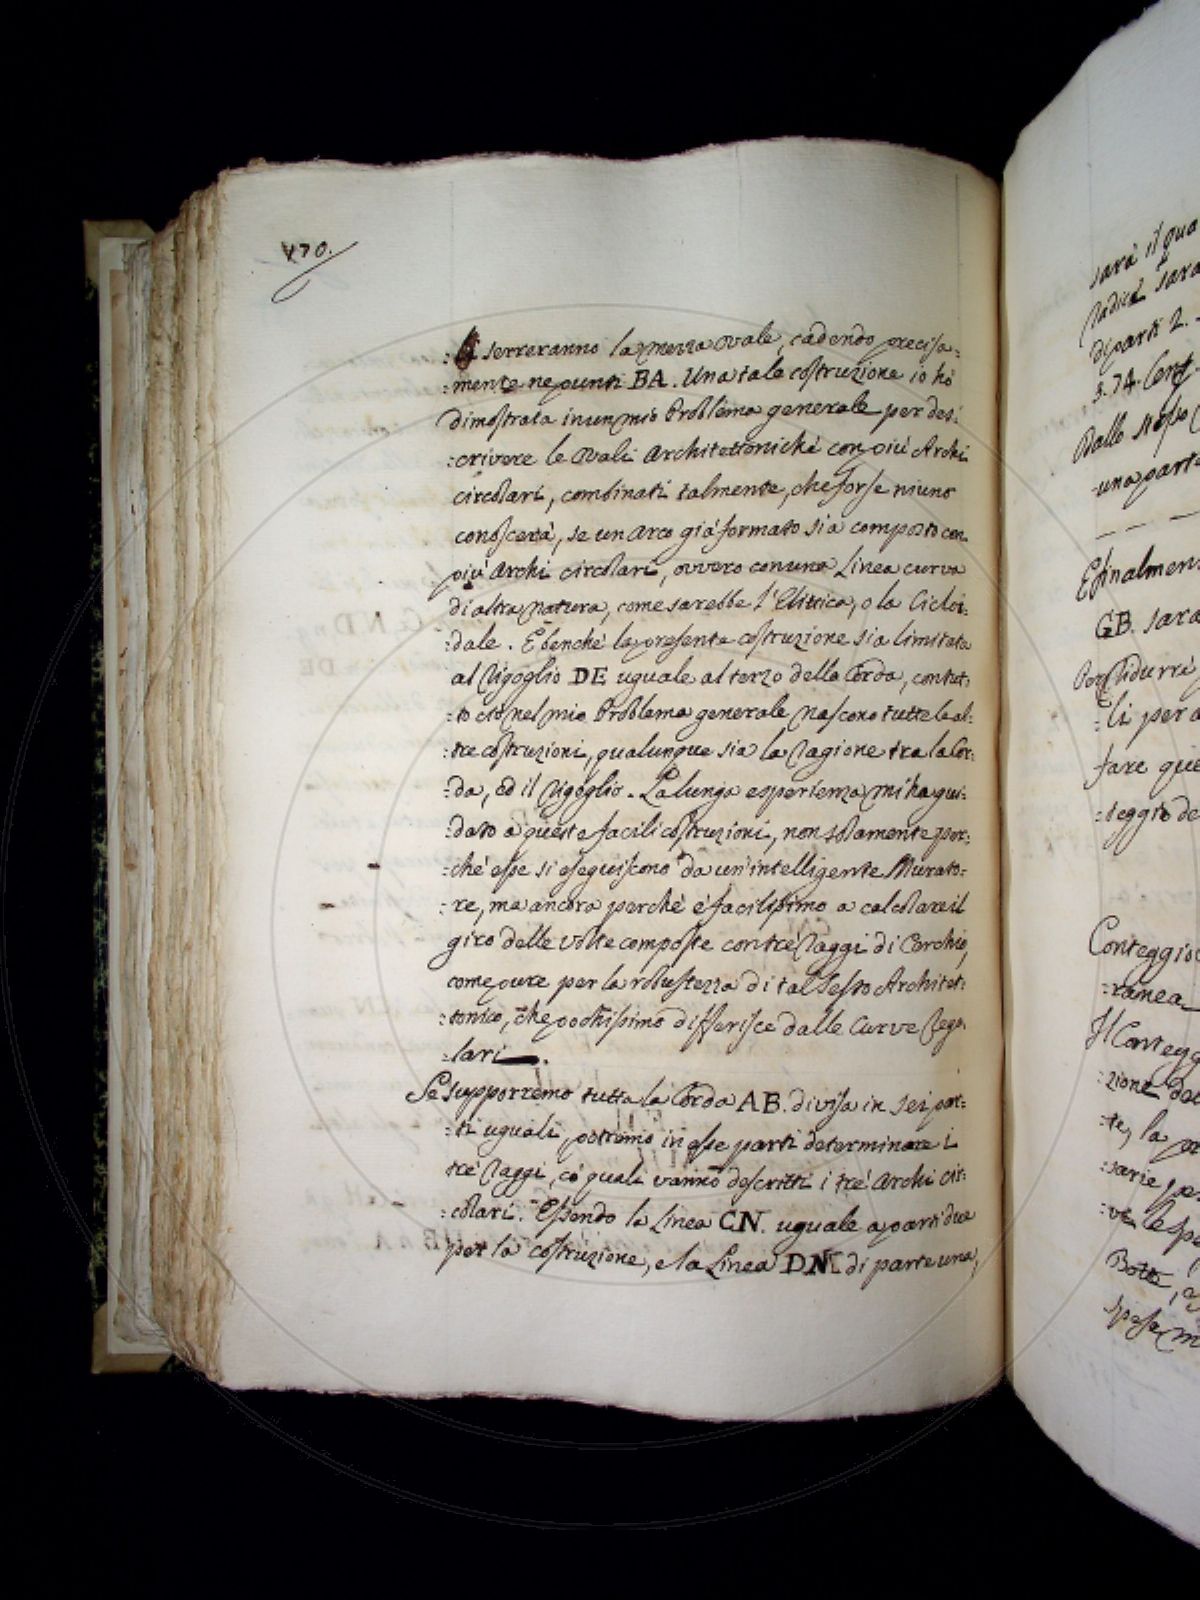 470.
serreranno la mezza ovale, cadendo precisa:
:mente ne punti BA. Una tale costruzione io hò
dimostrata in un mio Problema generale per des:
:crivere le Ovali Architettoniche con più Archi
circolari, combinati talmente, che forse niuno
conoscerà, se un Arco già formato sia composto con
più Archi circolari, ovvero con una Linea curva
di altra natura, come sarebbe l'Elittica, o la Cicloi:
:dale. E benché la presente costruzione sia limitata
al Rigoglio DE uguale al terzo della Corda, contut:
:to ciò nel mio Problema generale nascono tutte le al:
:tre costruzioni, qualunque sia la ragione tra la Cor:
:da, ed il Rigoglio. La lunga esperienza mi ha gui:
:dato a queste facili costruzioni, non solamente per:
:ché esse si eseguiscono da un'intelligente Murato:
:re, ma ancora perché è facilissimo a calcolare il
giro delle volte composte con tré raggi di Cerchio,
come pure per la robustezza di tal Sesto Architet:
:tonico, che pochissimo differisce dalle Curve rego:
:lari.
Se supporremo tutta la Corda AB. divisa in sei par:
:ti uguali, potremo in esse parti determinare i
tré raggi, co' quali vanno descritti i tré Archi cir:
:colari. Essendo la Linea CN. uguale a parti due
per la costruzione, e la Linea DN. di parte una,
sarà il qua
radice sara
di parti 2.
3.74. Cent.
Dallo stesso
una parte
E finalmen
GB. sarà
Per ridurre
:li per
fare que
:teggio de
Conteggio
:ranea
Il Conteg
:zione del
:te, la
:sarie pe
:ve le spe
Botte,
spese m